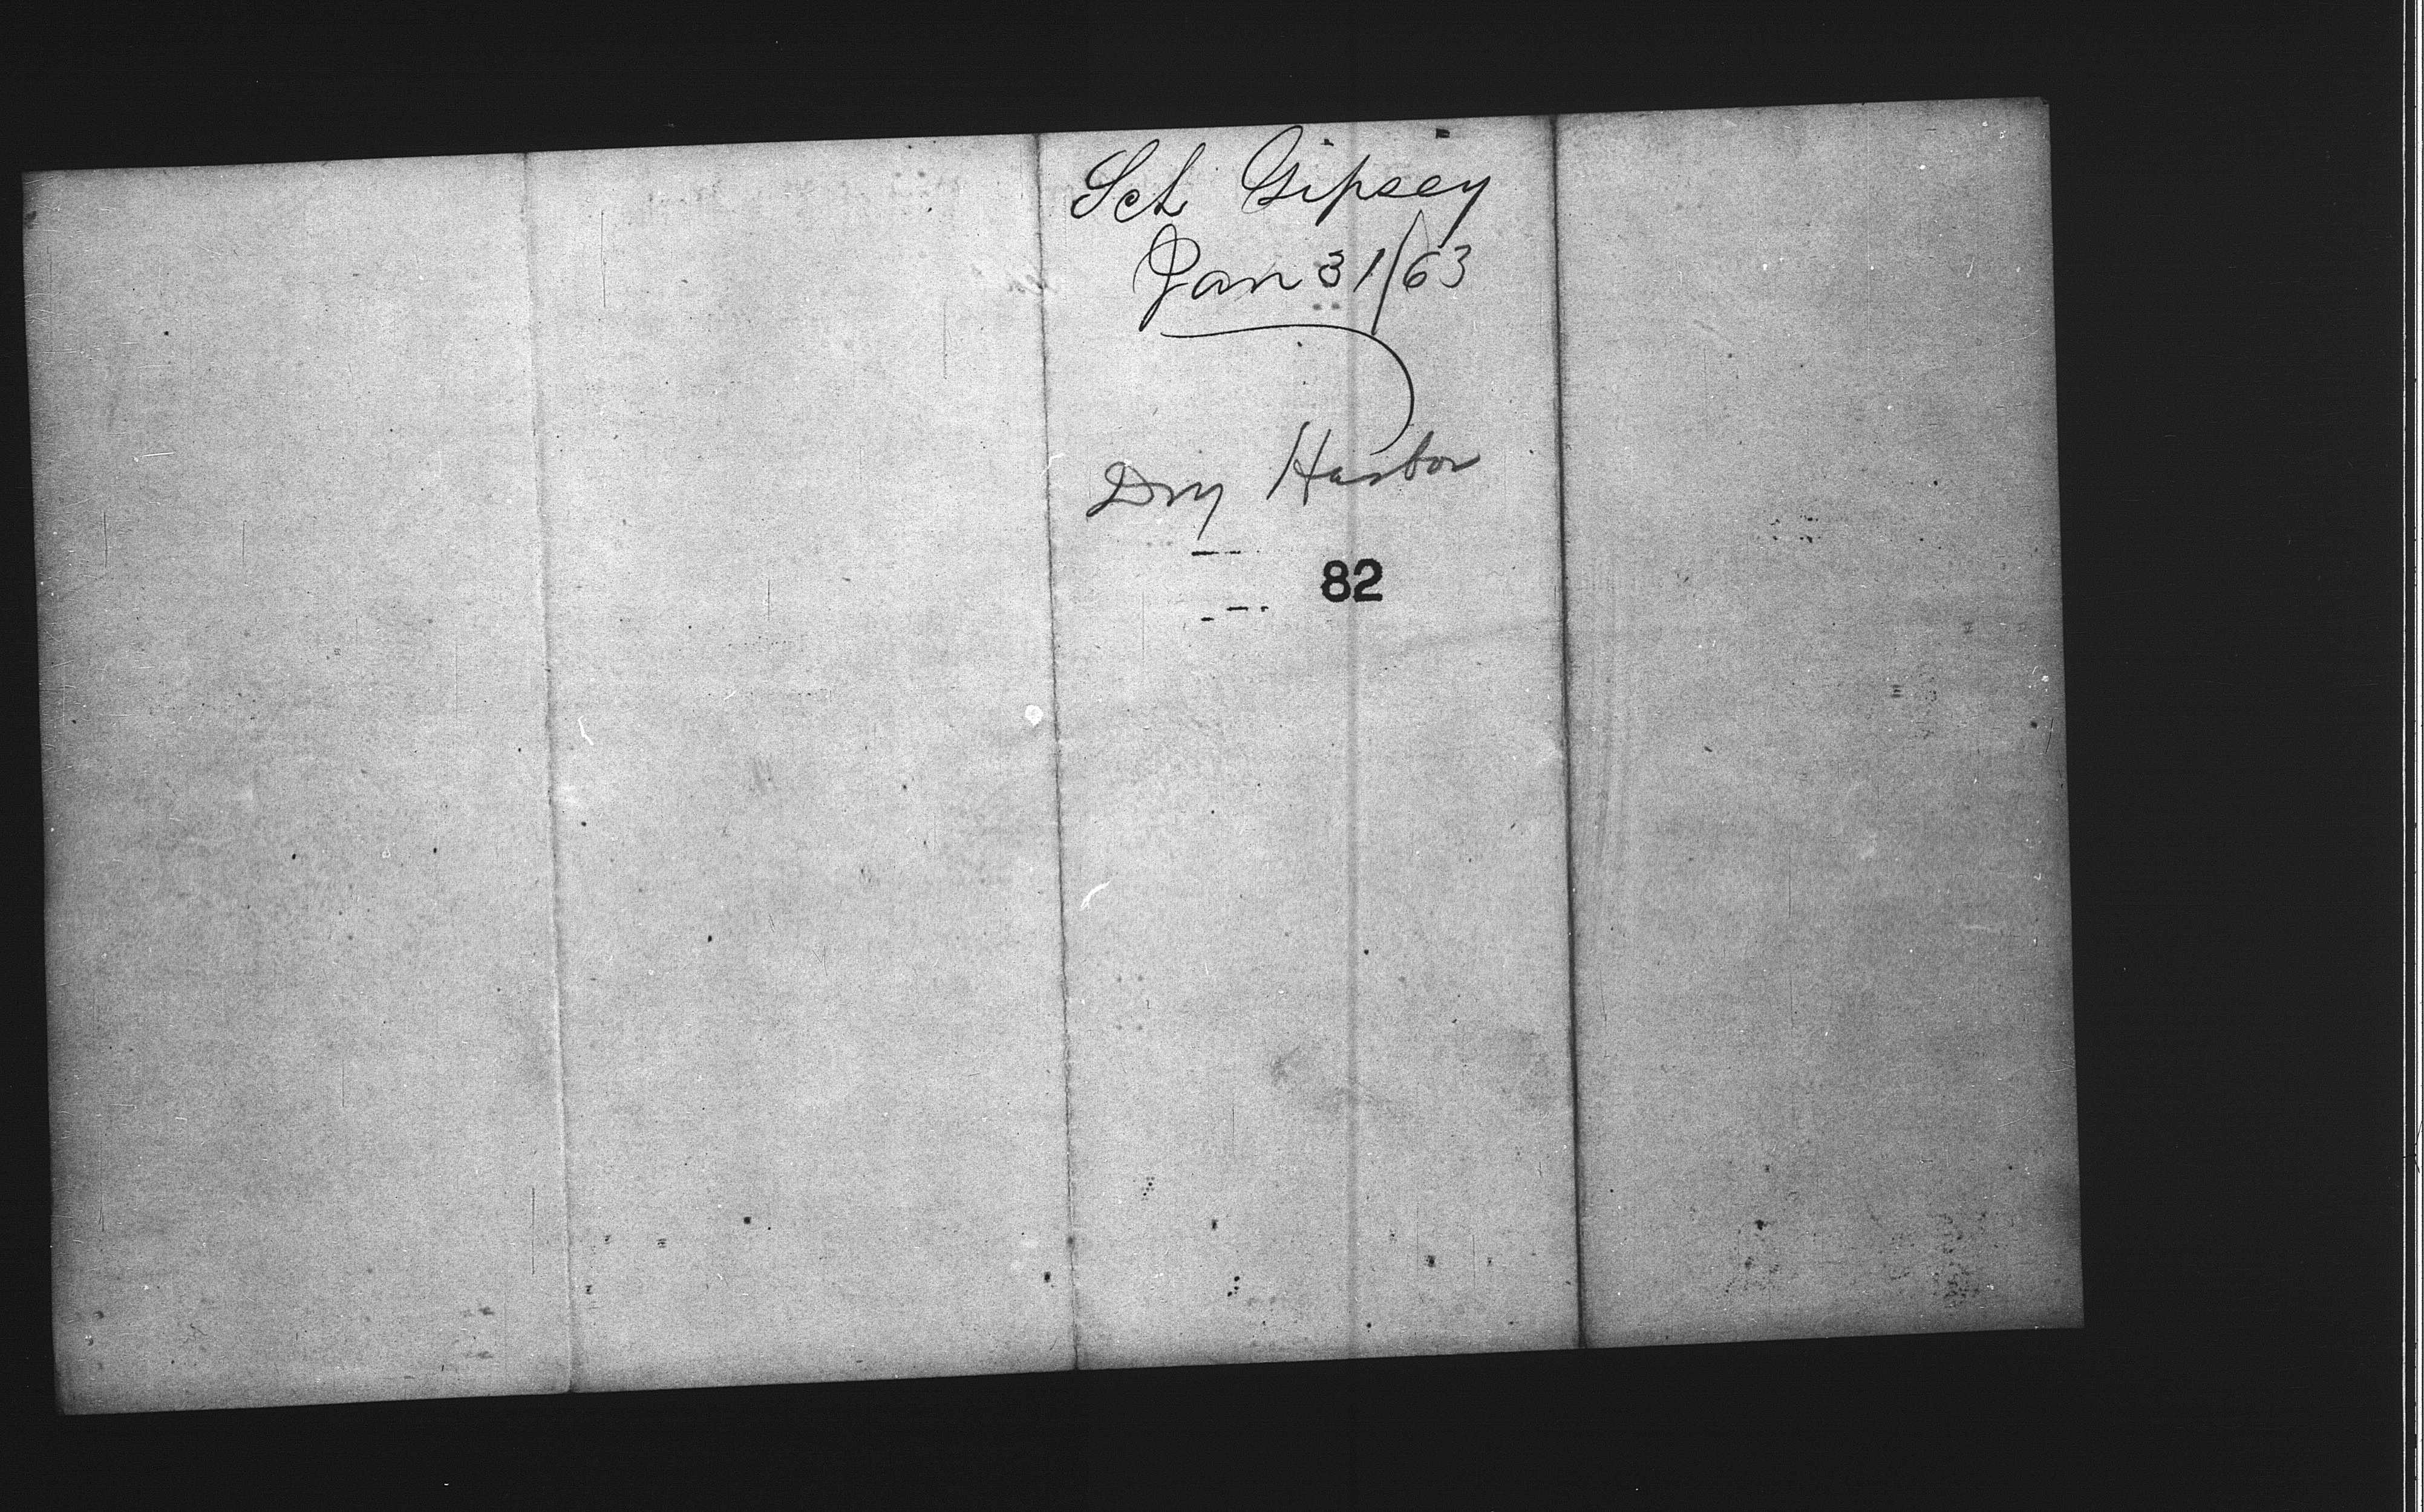 Sch Gipsey
Jan 31/63
Dry Harbor
82